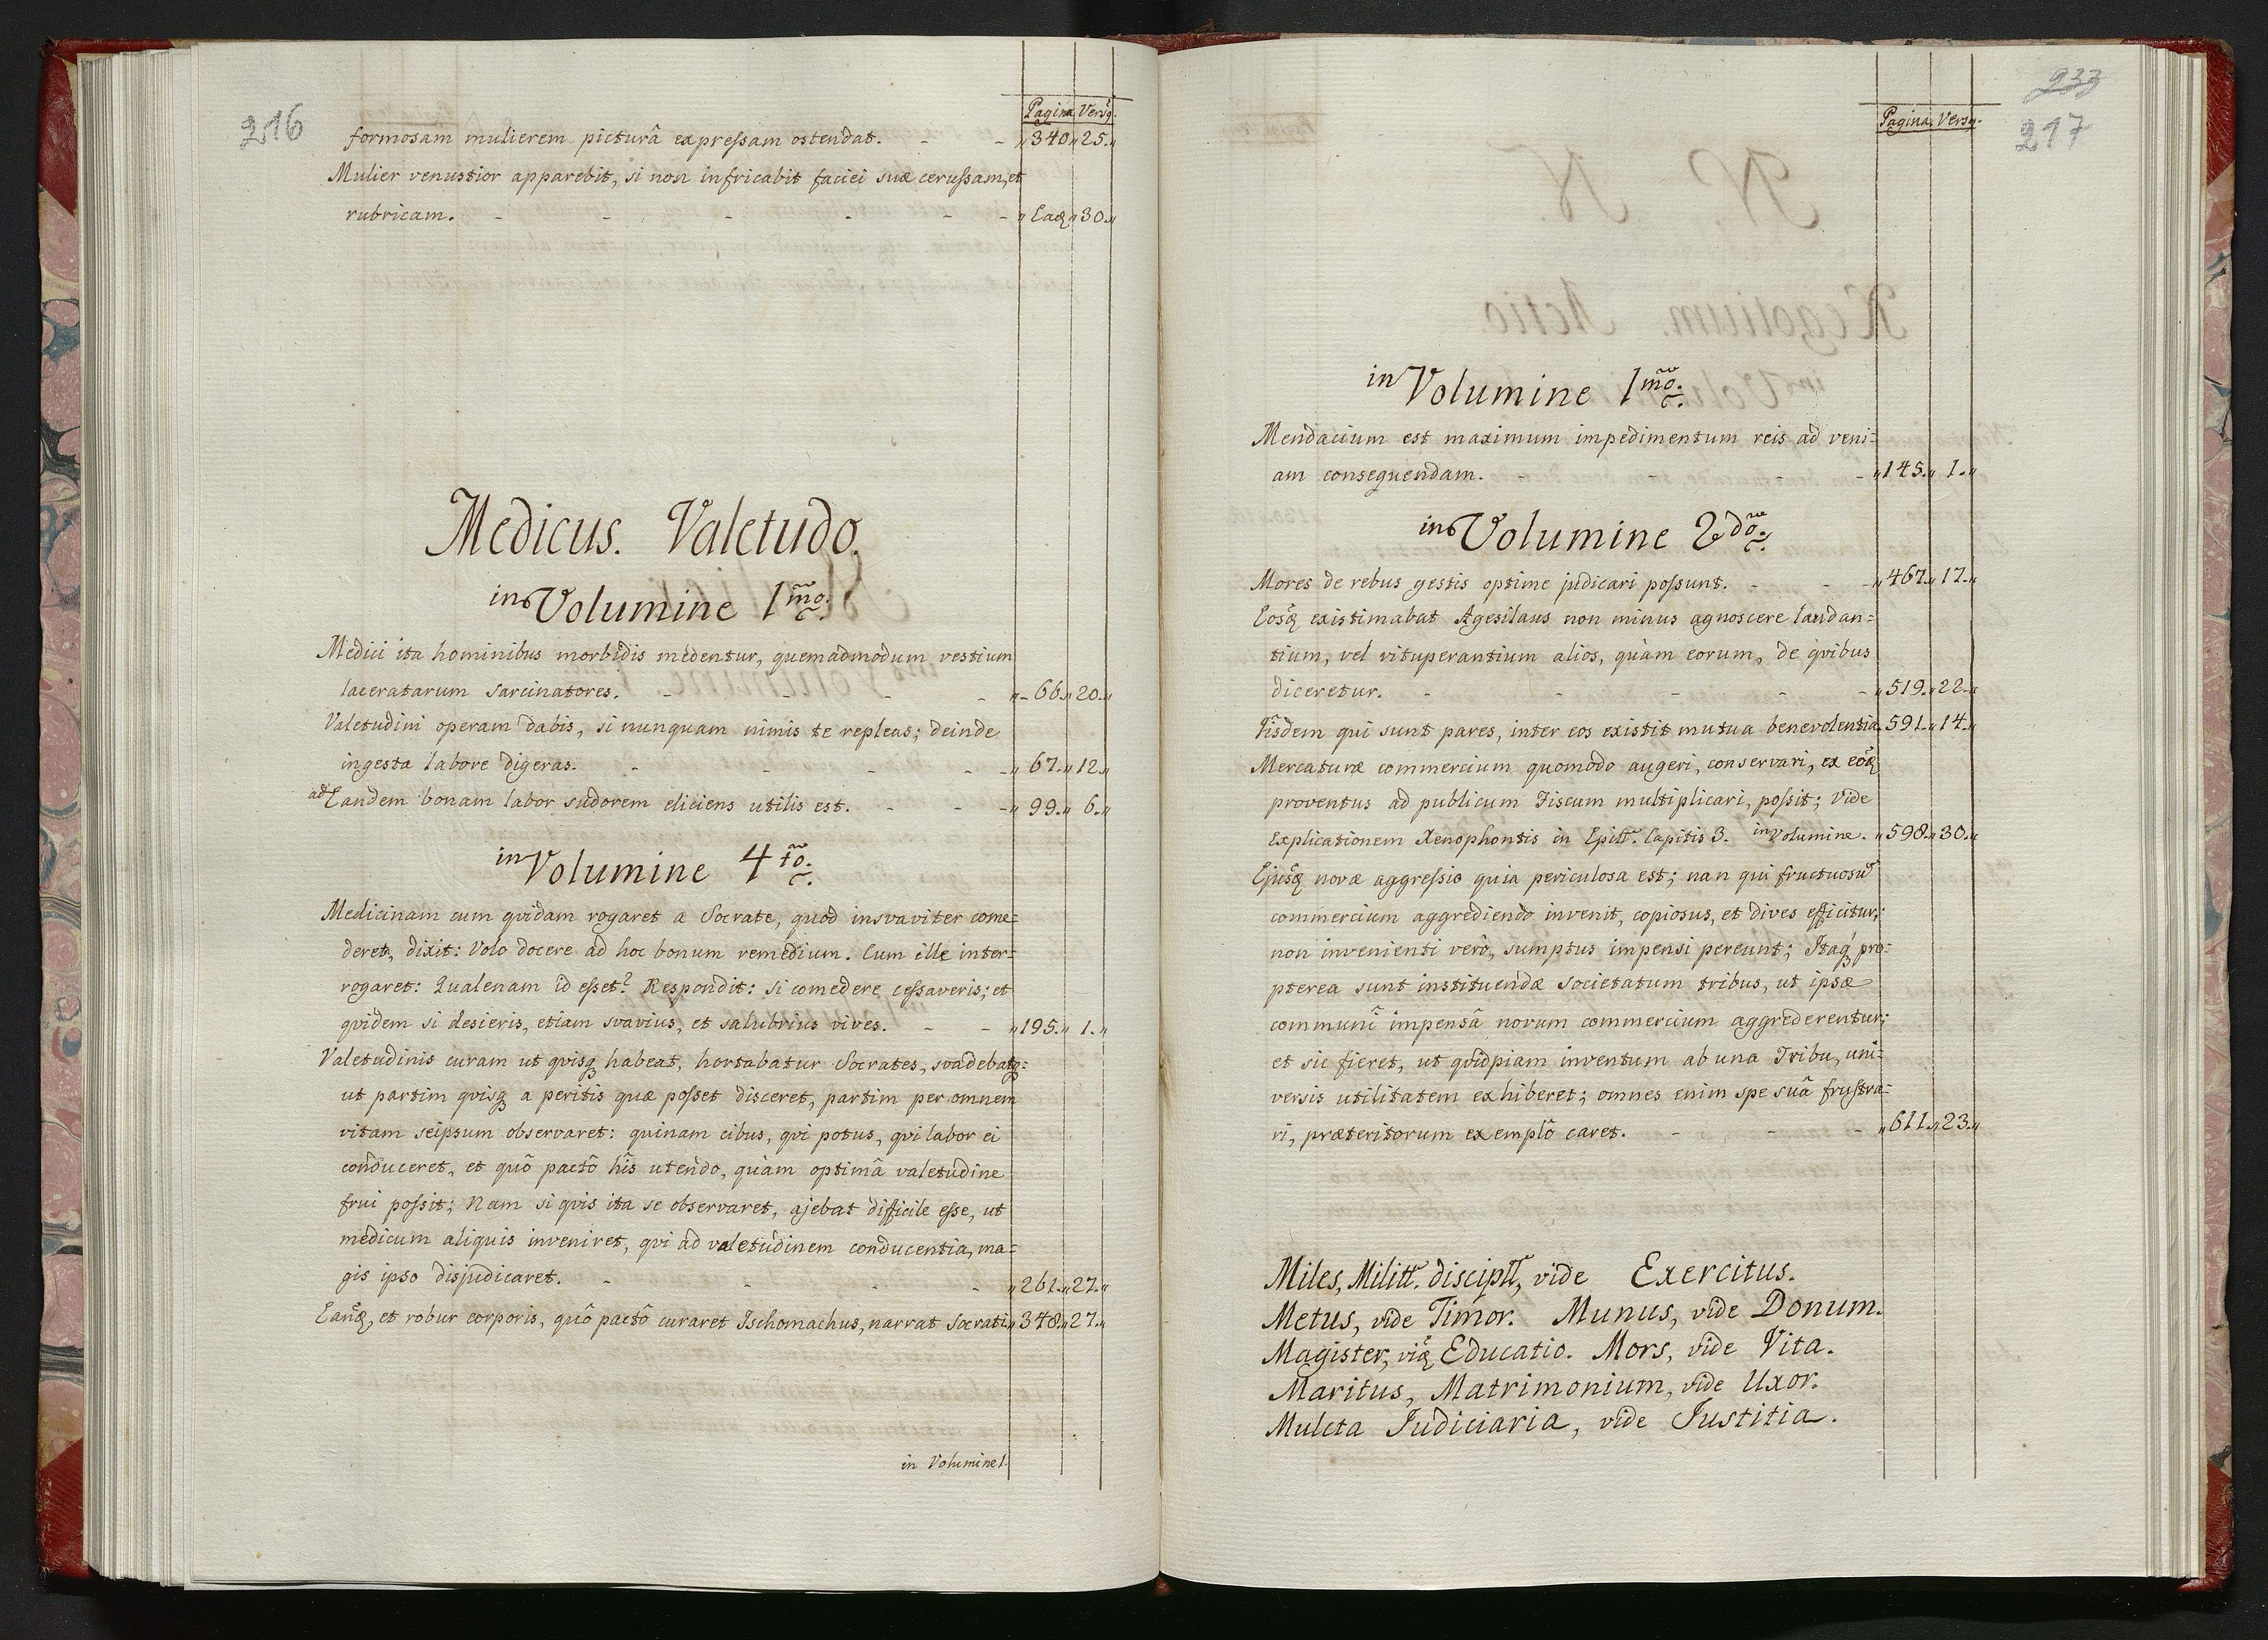 216
Pagina Versq.
formosam mulierem picturâ expressam ostendat. - - „340„25.„
Mulier venustior apparebit, si non infricabit faciei suæ cerussam, et
rubricam. - - - - - - „Eaq„30.„
Medicus. Valetudo.
in Volumine 1mo.
Medici ita hominibus morbidis medentur, quemadmodum vestium
laceratarum sarcinatores. - - - - „-66.„20.„
Valetudini operam dabis, si nunquam nimis te repleas; deinde
ingesta labore digeras. - - - - -„67.„12.„
ad Eandem bonam labor sudorem eliciens utilis est. - - -„99.„6.„
in Volumine 4to.
Medicinam cum qvidam rogaret a Socrate, quod insvaviter come=
deret, dixit: Volo docere ad hoc bonum remedium. Cum ille inter=
rogaret: Qualenam id esset? Respondit: si comedere cessaveris; et
qvidem si desieris, etiam svavius, et salubrius vives. - - „195.„1.„
Valetudinis curam ut qvisq habeat, hortabatur Socrates, svadebatq:
ut partim qvisq a peritis quæ posset disceret, partim per omnem
vitam seipsum observaret: quinam cibus, qvi potus, qvi labor ei
conduceret, et quô pactô hîs utendo, quàm optimâ valetudine
frui possit; Nam si qvis ita se observaret, ajebat difficile esse, ut
medicum aliquis inveniret, qvi ad valetudinem conducentia, ma=
gis ipso disjudicaret. - - - - „261.„27.„
Eanq, et robur corporis, quô pactô curaret Ischomachus, narrat Socrati„348„27.„
in Volumine 1.
233
217
Pagina. Versq.
in Volumine 1mo.
Mendacium est maximum impedimentum reis ad veni=
am consequendam. - - - - „145.„1.„
in Volumine 2do.
Mores de rebus gestis optime judicari possunt. - - -„467.„17.„
Eosq existimabat Agesilaus non minus agnoscere laudan=
tium, vel vituperantium alios, quàm eorum, de qvibus
diceretur. - - - - -„519.„22.„
Iisdem qui sunt pares, inter eos existit mutua benevolentia.591.„14.„
Mercaturæ commercium quomodo augeri, conservari, ex eoq
proventus ad publicum Fiscum multiplicari, possit; vide
explicationem Xenophontis in Epitt. Capitis 3. in Volumine. „598.„30.„
Ejusq novæ aggressio quia periculosa est; nan qui fructuosũ
commercium aggrediendo invenit, copiosus, et dives efficitur;
non invenienti verô, sumptus impensi pereunt; Itaq pro=
pterea sunt instituendæ societatum tribus, ut ipsæ
communî impensâ novum commercium aggrederentur;
et sic fieret, ut qvidpiam inventum ab una Tribu, uni=
versis utilitatem exhiberet; omnes enim spe suâ frustra=
ri, præteritorum exemplô caret. - - - „611.„23.„
Miles, Militt. discipll, vide Exercitus.
Metus, vide Timor. Munus, vide Donum.
Magister, viq Educatio. Mors, vide Vita.
Maritus, Matrimonium, vide Uxor.
Mulcta Judiciaria, vide Justitia.